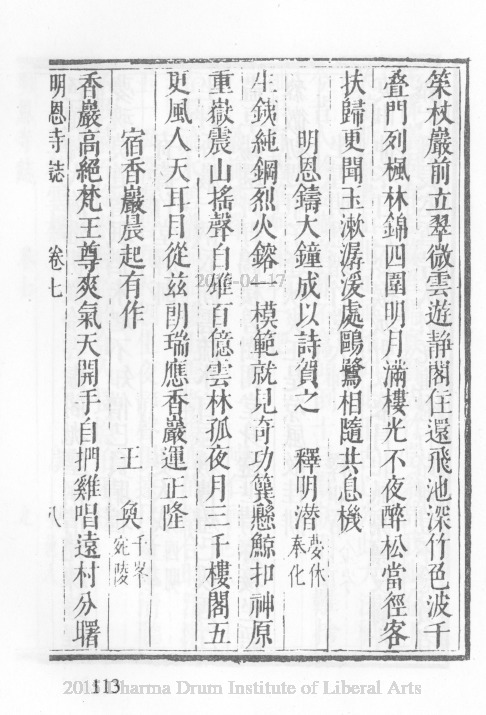 筞杖巖前立翠微雲遊靜閣任還飛池深竹色波千
叠門列楓林錦四圍明月滿樓光不夜醉松當徑客
扶歸更聞玉漱潺湲處鷗鷺相隨共息機
明恩鑄大鐘成以詩賀之 釋明潛 夢休奉化
生鉄純鋼烈火鎔一模範就見奇功簨懸鯨扣神原
重嶽震山搖聲自雄百億雲林孤夜月三千樓閣五
更風人天耳目從茲開瑞應香巖運正隆
宿香巖晨起有作 王奐 千峯宛陵
香巖高絕梵王尊爽氣天開手自捫雞唱遠村分曙
明恩寺誌 卷七 八
113
2015 Dharma Drum Institute of Liberal Arts